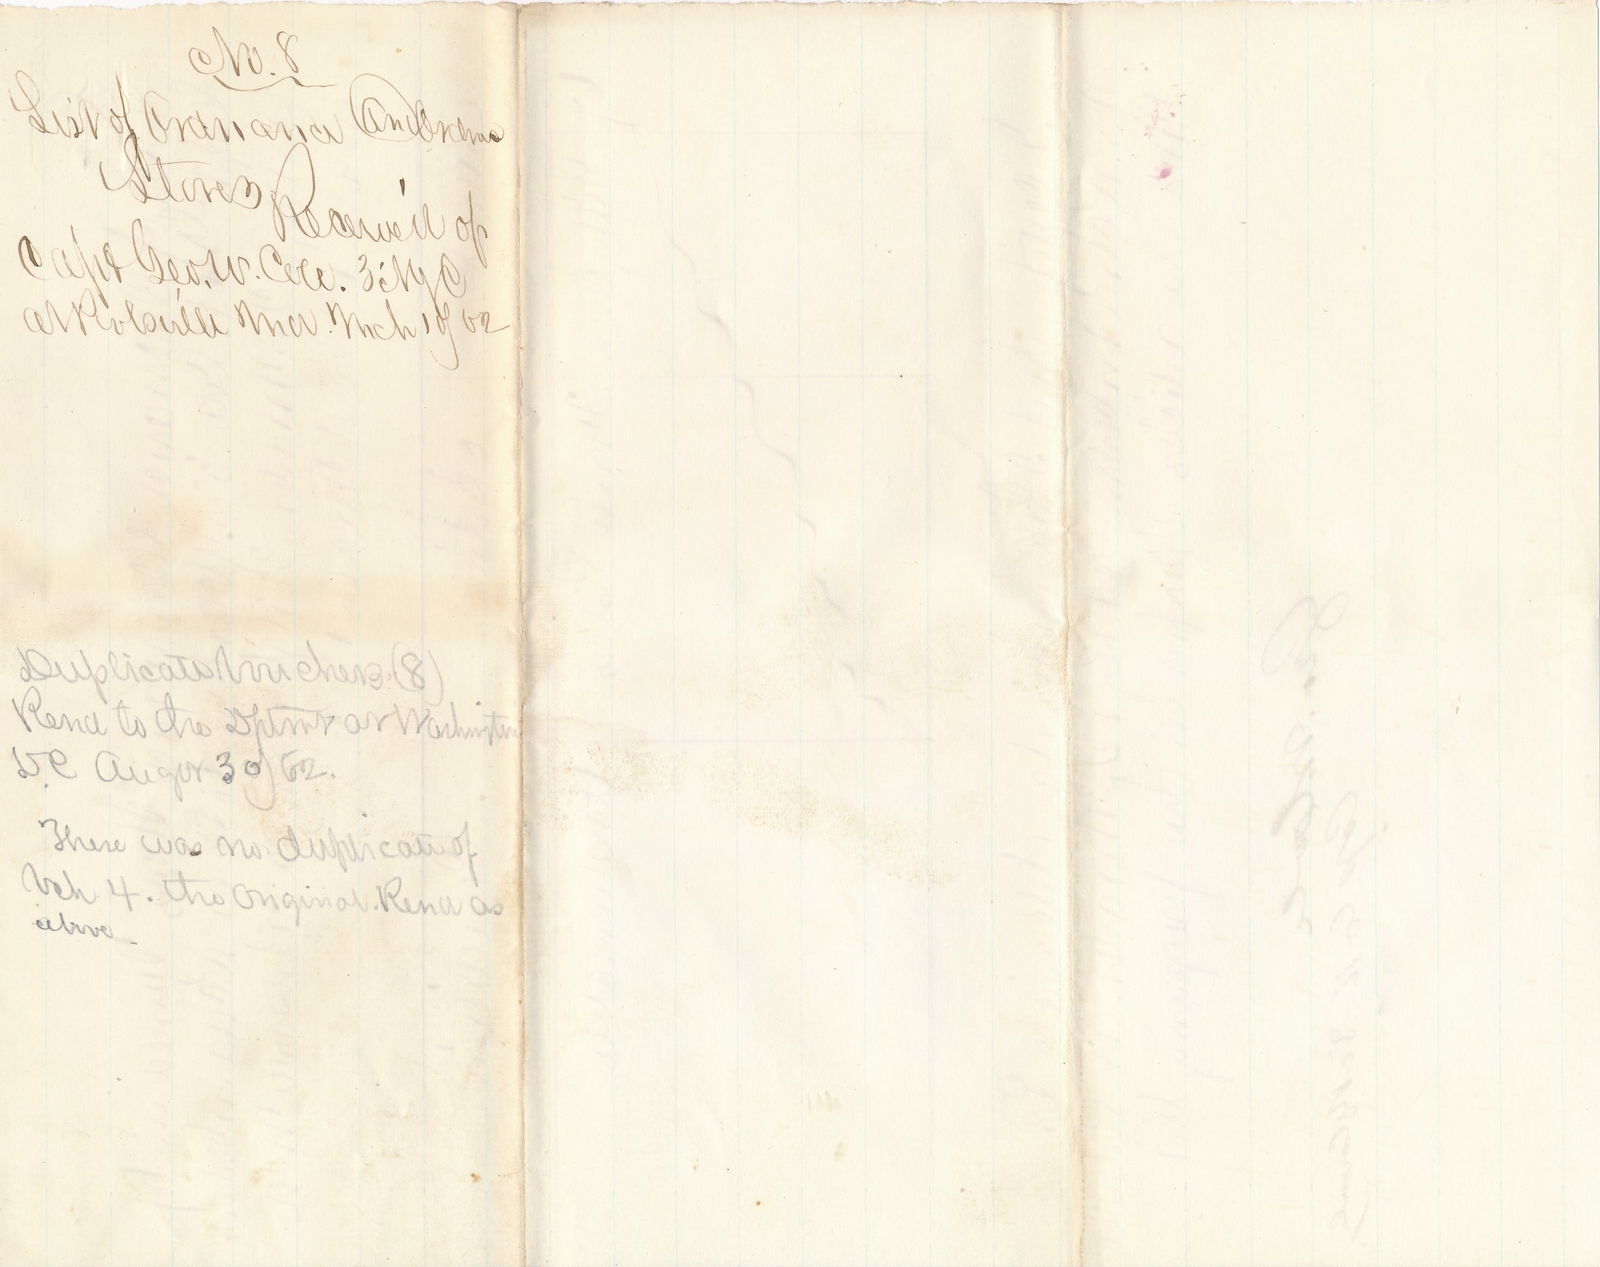 No. 8
List of Ordnance and Ordnance
Stores
Received of
Capt Geo. W. Cole. 3d NYC
at Md. Mch 1st 62
Duplicate Vouchers (8)
Rend to the Dptmt at Washington
D.C Augst 30/62.
There was no duplicate of
Vch 4. the original Rend as
above